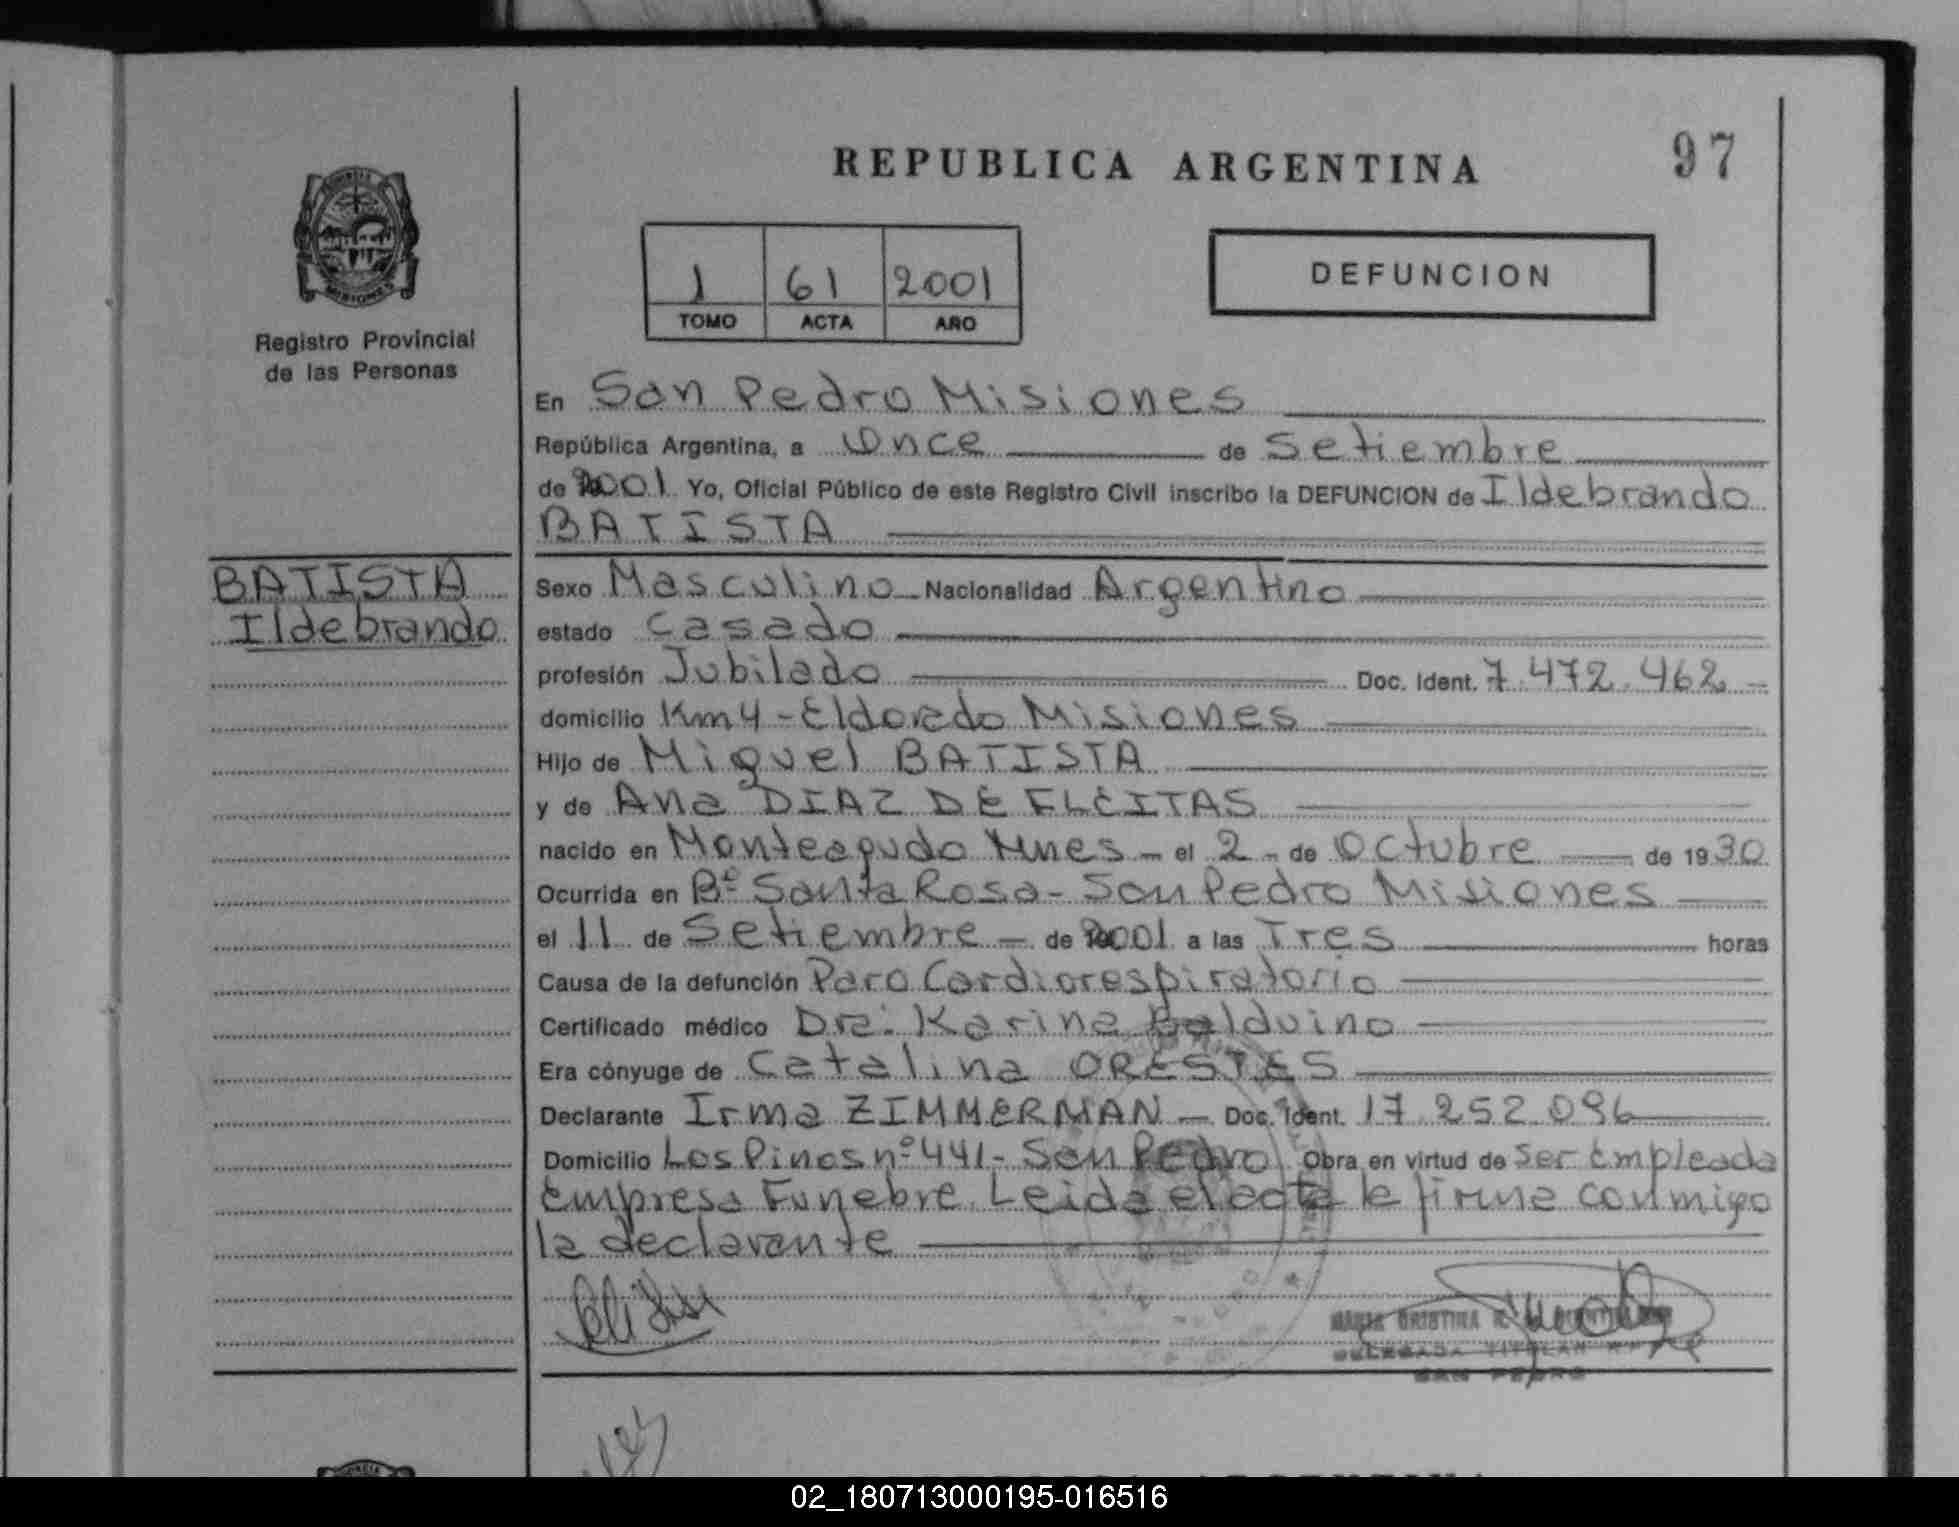 REPUBLICA ARGENTINA
97
MISIONES
Registro Provincial
de las Personas
1 61 2001
TOMO ACTA AÑO
DEFUNCION
En San Pedro Misiones
República Argentina, a Once de Setiembre
de 2001 Yo, Oficial Público de este Registro Civil inscribo la DEFUNCION de Ildebrando
BATISTA
BATISTA
Ildebrando
Sexo Masculino Nacionalidad Argentino
estado Casado
profesión Jubilado Doc. Ident. 7.472.462
domicilio Km 4 - Eldorado Misiones
Hijo de Miguel BATISTA
y de Ana DIAZ DE FLEITAS
nacido en Monteagudo Mnes - el 2 - de Octubre de 1930
Ocurrida en Bº Santa Rosa - San Pedro Misiones
el 11 de Setiembre - de 2001 a las Tres horas
Causa de la defunción Paro Cardiorespiratorio
Certificado médico Dra: Karina Balduino
Era cónyuge de Catalina ORESTES
Declarante Irma ZIMMERMAN - Doc. Ident. 17.252.096
Domicilio Los Pinos nº 441 - San Pedro Obra en virtud de Ser Empleada
Empresa Funebre. Leida el acta la firma conmigo
la declarante
CRISTINA
DELEGADA TITULAR
SAN PEDRO
02_180713000195-016516